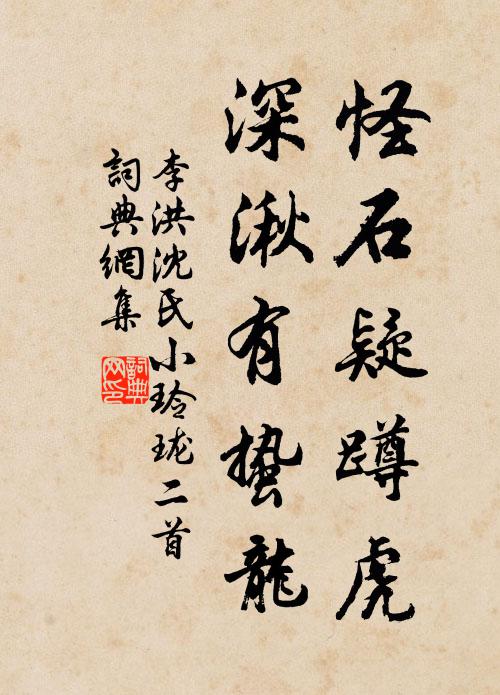 怪石疑蹲虎
深湫有蟄龍
李洪沈氏小玲瓏二首
詞典網集
詞典網印